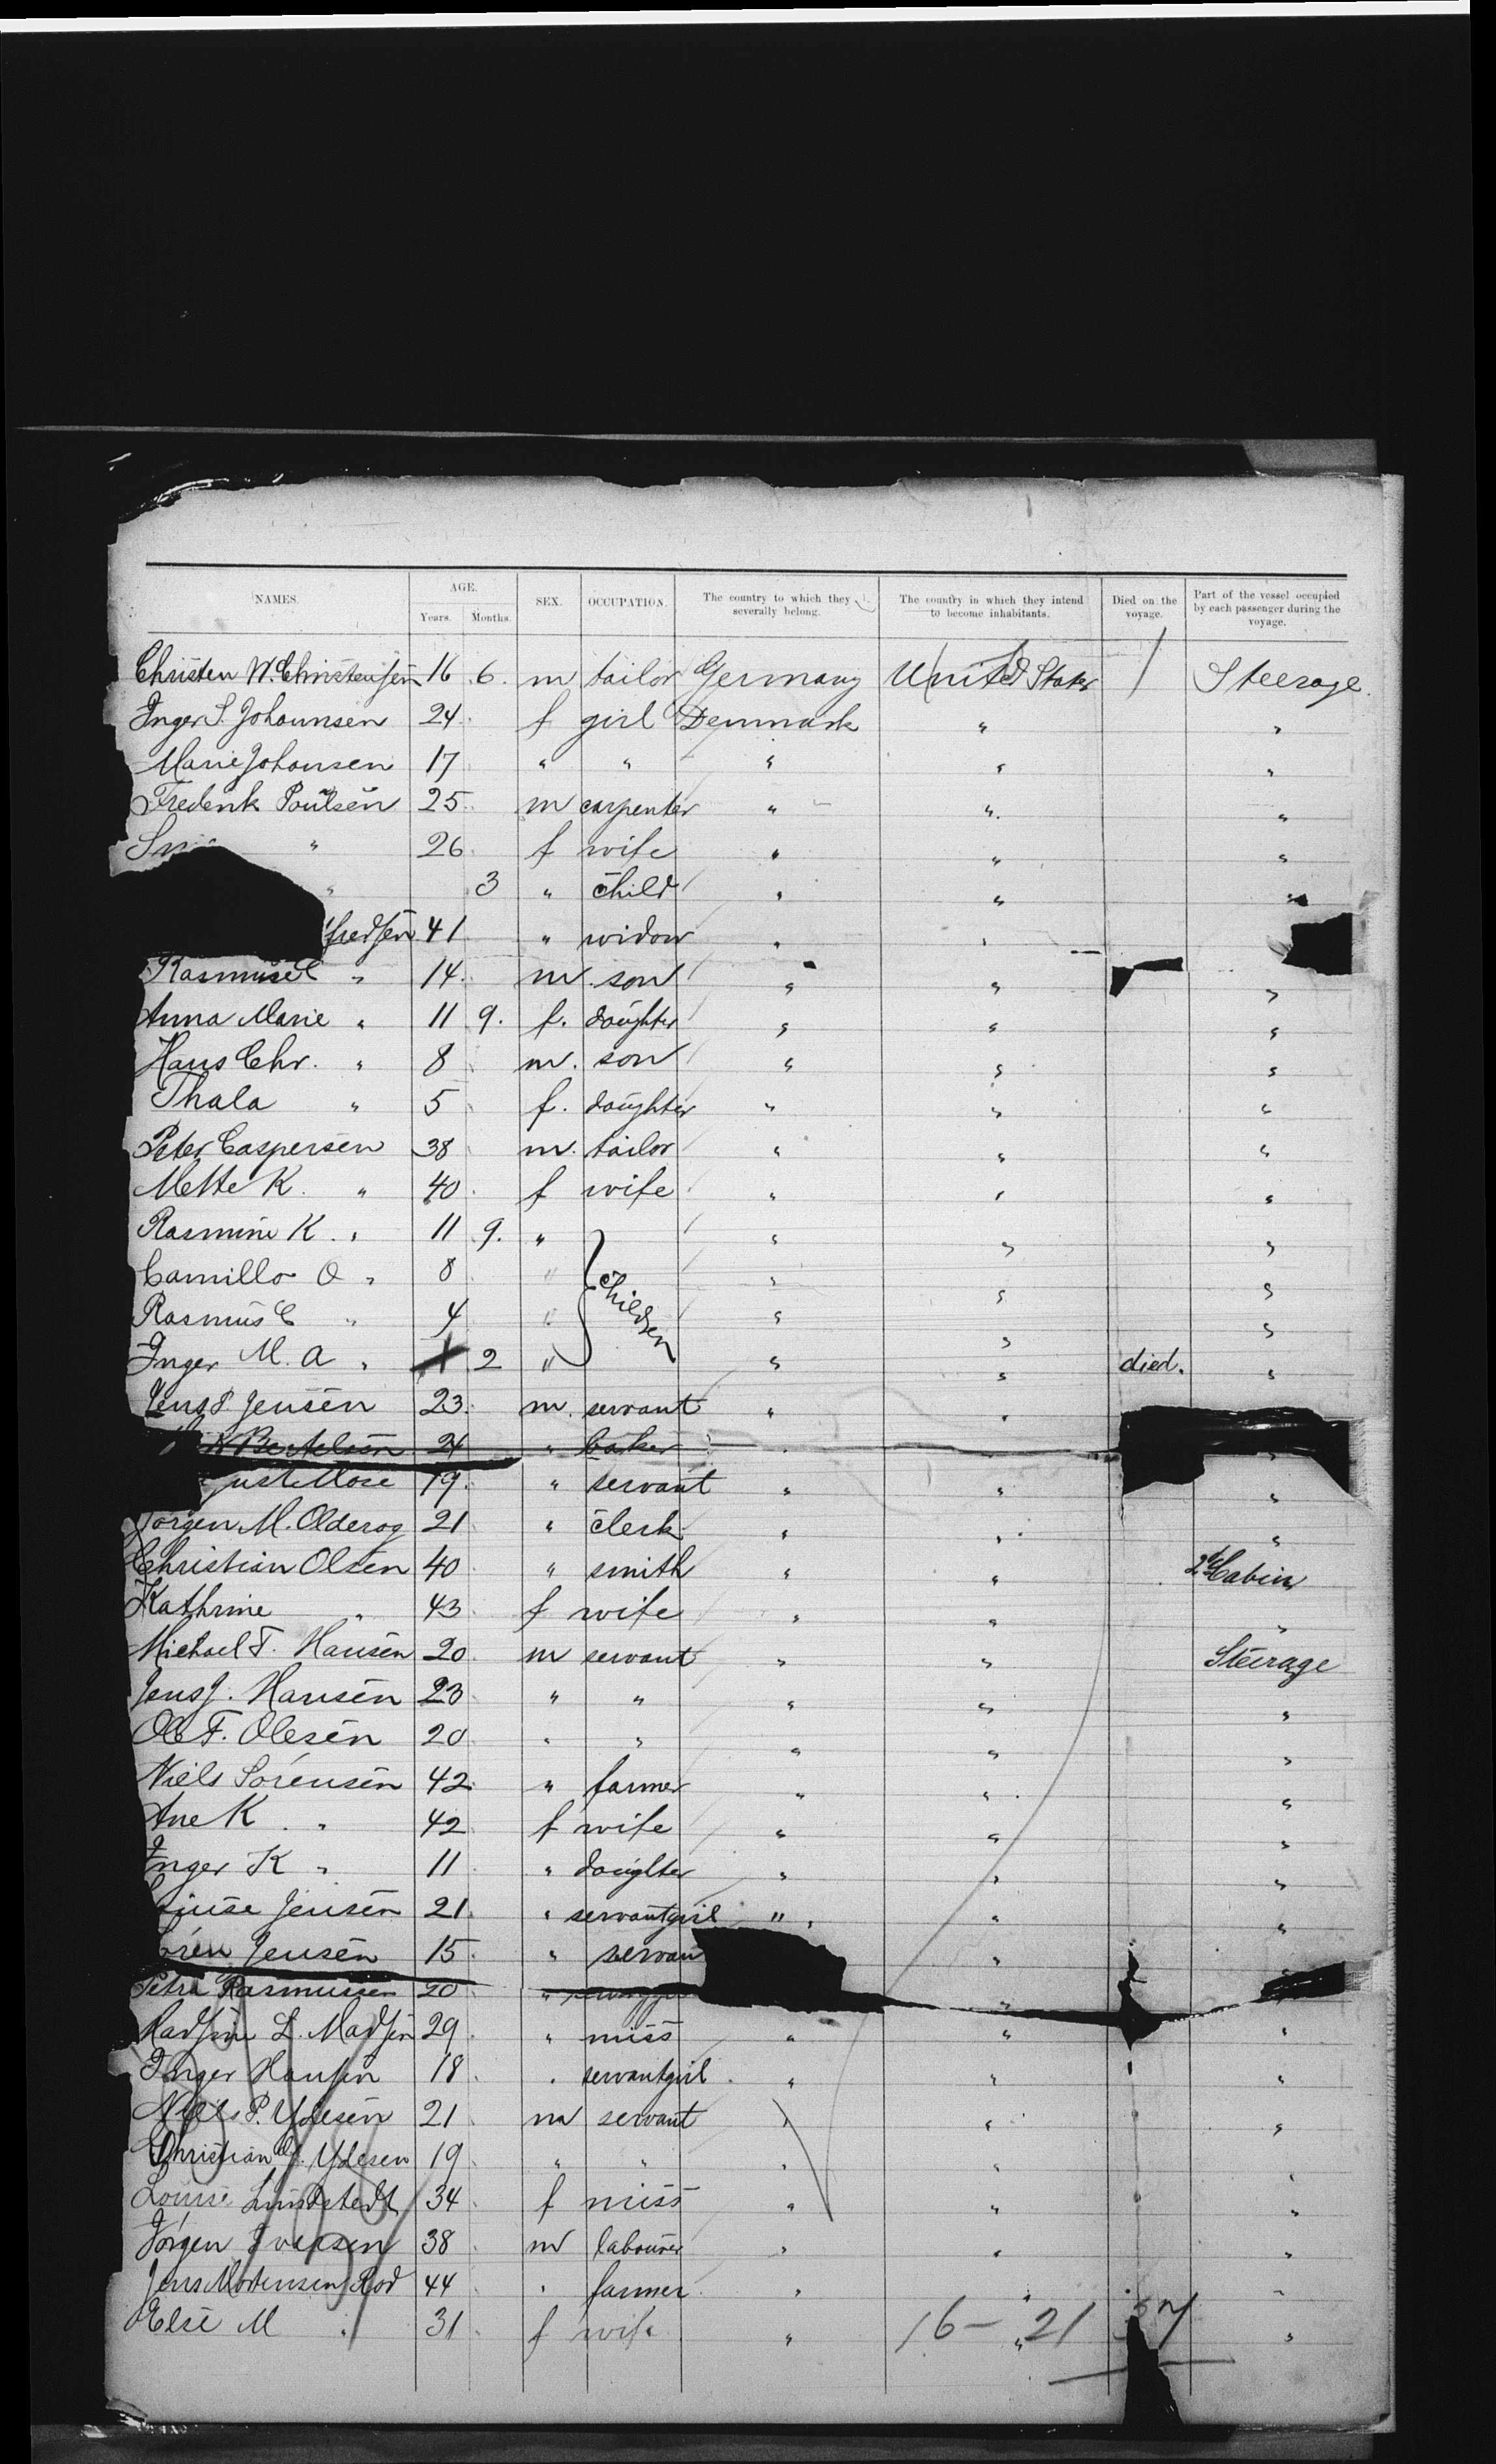 NAMES. AGE. SEX. OCCUPATION. The country to which they severally belong. The country in which they intend to become inhabitants. Died on the voyage. Part of the vessel occupied by each passenger during the voyage.
Years. Months.
Christen W. Christensen 16 6. m tailor Germany United States Steerage.
Inger S. Johannsen 24 f girl Denmark " "
Marie Johansen 17 " " " " "
Frederik Poulsen 25 m carpenter " " "
" 26 f wife " " "
" 3 " child " " "
41 " widow "
Rasmus C " 14 m. son " " "
Anna Marie " 11 9. f. daughter " " "
Hans Chr. " 8 m. son " " "
Thala " 5 f. daughter " " "
Peter Caspersen 38 m. tailor " " "
Mette K. " 40 f wife " " "
Rasmine K. " 11 9. " children " " "
Camillo O " 8 " " " "
Rasmus C " 4 " " " "
Inger M. A " 2 " " " died. "
Jens P. Jensen 23. m. servant " "
Bertelsen 21 " baker " "
19. " servant " " "
Jörgen M. Olderog 21 " clerk " " "
Christian Olsen 40 " smith " " 2d Cabin
Kathrine " 43 f wife " " "
Michael F. Hansen 20 m servant " " Steerage
Jens J. Hansen 23 " " " " "
Ole F. Olesen 20 " " " " "
Niels Sörensen 42 " farmer " " "
Ane K. " 42 f wife " " "
Inger K " 11 " daughter " " "
Jensen 21. " servantgirl " " "
Jensen 15 " servan "
Petra Rasmussen 20 " "
Madsine L. Madsen 29 " miss " " "
Inger Hansen 18 " servantgirl " " "
Niels P. Ydesen 21 m servant " " "
Christian J. Ydesen 19 " " " " "
Louise Lundstedt 34 f miss " " "
Jörgen Iversen 38 m labourer " " "
Jens Mortensen Rod 44 " farmer " " "
Else M " 31 f wife " " "
16 - 21 37